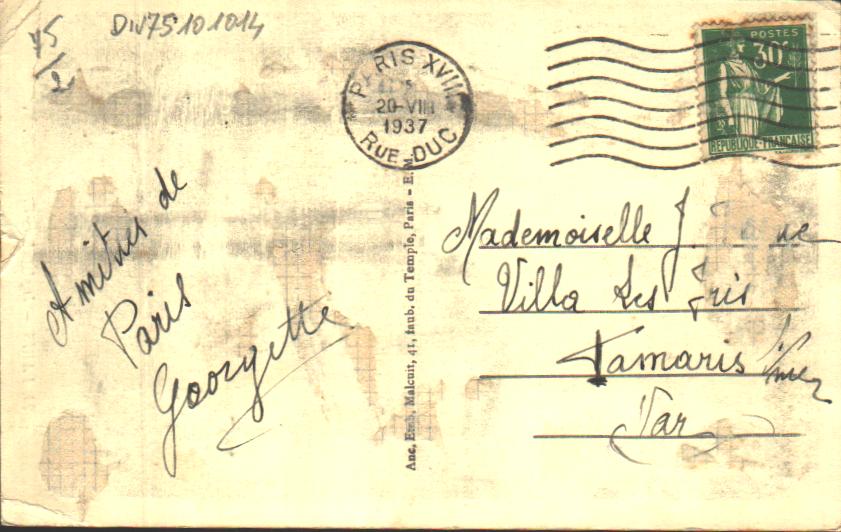 75
2
Div75101014
PARIS XVIII
20-VIII
1937
RUE DUC
POSTES
30c
REPUBLIQUE-FRANÇAISE
Amitiés de
Paris
Georgette
Anc. Etab. Malcuit, 41, faub. du Temple, Paris — E. M.
Mademoiselle J.
Villa Les Iris
Tamaris s/mer
Var